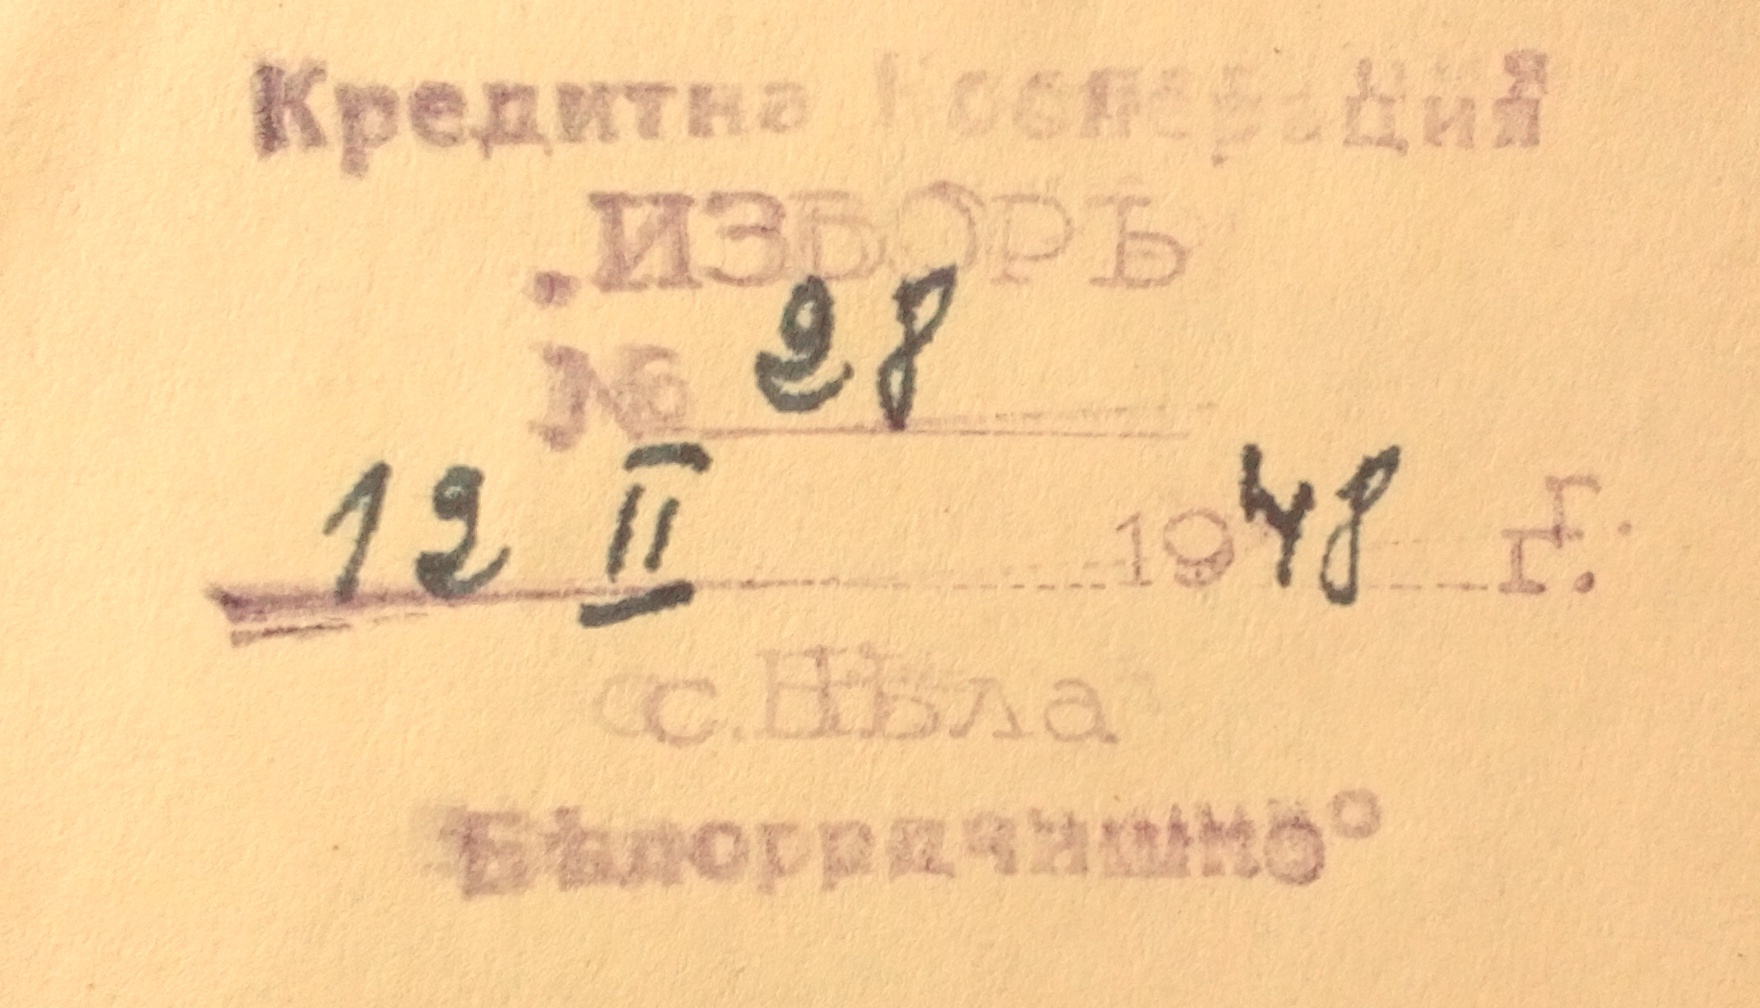 Кредитна Кооперация
„ИЗБОРЪ
№ 28
12 II 1948 г.
с. Бѣла
Бѣлоградчишко